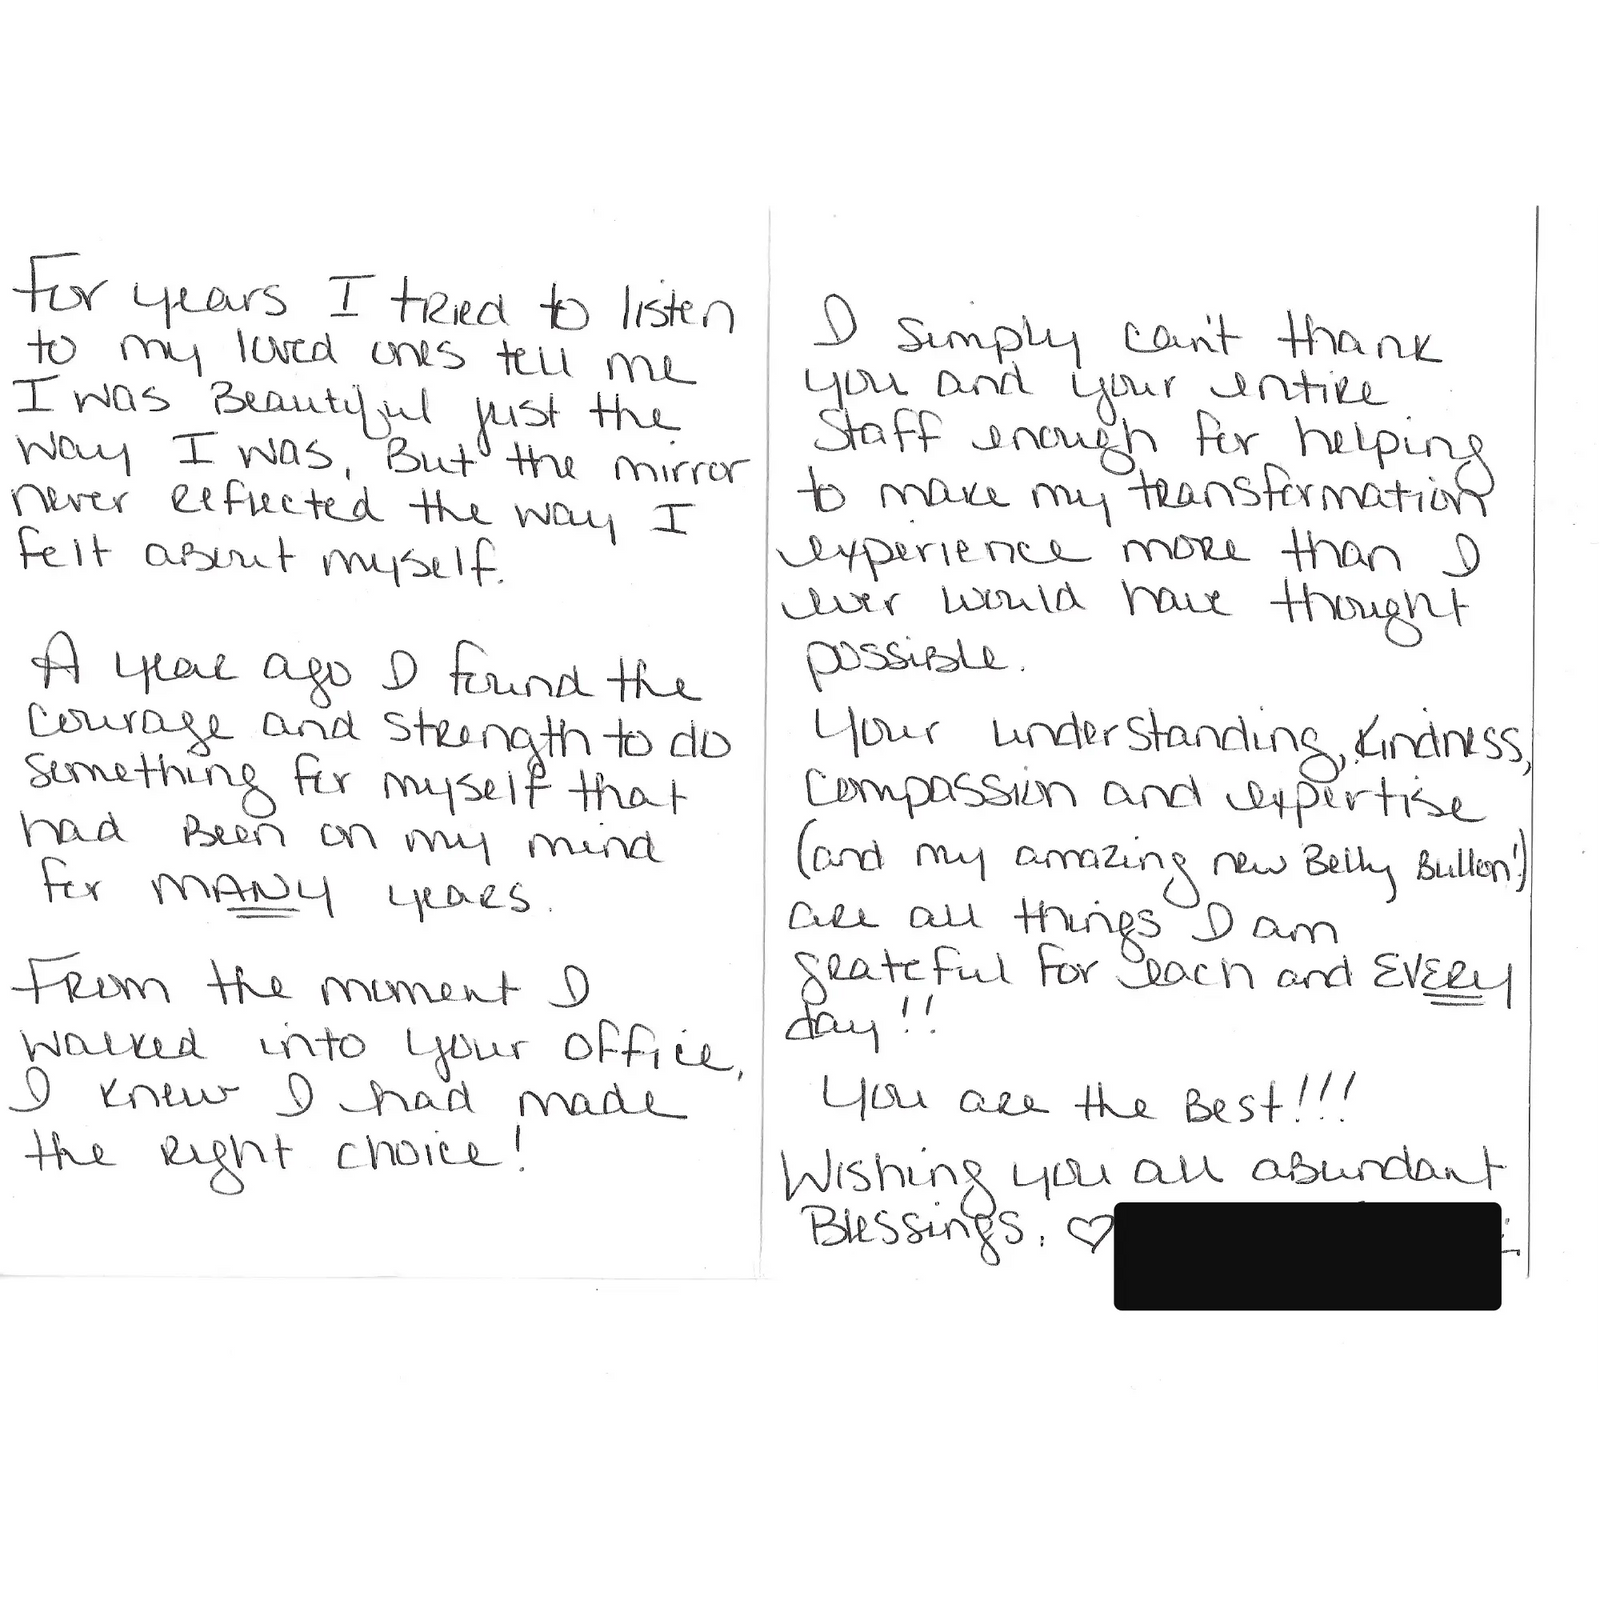 For years I tried to listen
to my loved ones tell me
I was Beautiful just the
way I was. But the mirror
never reflected the way I
felt about myself.
A year ago I found the
courage and strength to do
something for myself that
had Been on my mind
for MANY years.
From the moment I
walked into your office,
I knew I had made
the Right choice!
I simply can't thank
you and your entire
Staff enough for helping
to make my transformation
experience more than I
ever would have thought
possible.
Your understanding, kindness,
compassion and expertise
(and my amazing new Belly Button!)
are all things I am
grateful for each and EVERY
day!!
You are the Best!!!
Wishing you all abundant
Blessings. ♡